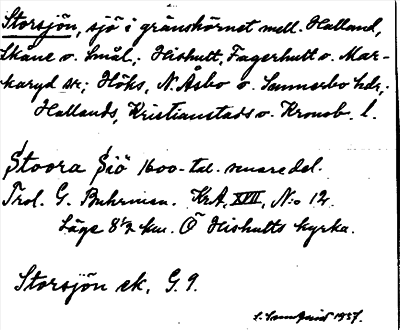 Storsjön, sjö i gränshörnet mell. Halland,
Skåne o. Smål.; Hishult, Fagerhult o. Mar-
karyd snr; Höks, N. Åsbo o. Sunnerbo hdr;
Hallands, Kristianstads o. Kronob. l.
Stoora Siö 1600-tal. senare del.
Trol. G. Buhrman. KrA, XVII, N:o 12.
Läge 8½ km. Ö Hishults kyrka.
Storsjön ek. G. 9.
1937.